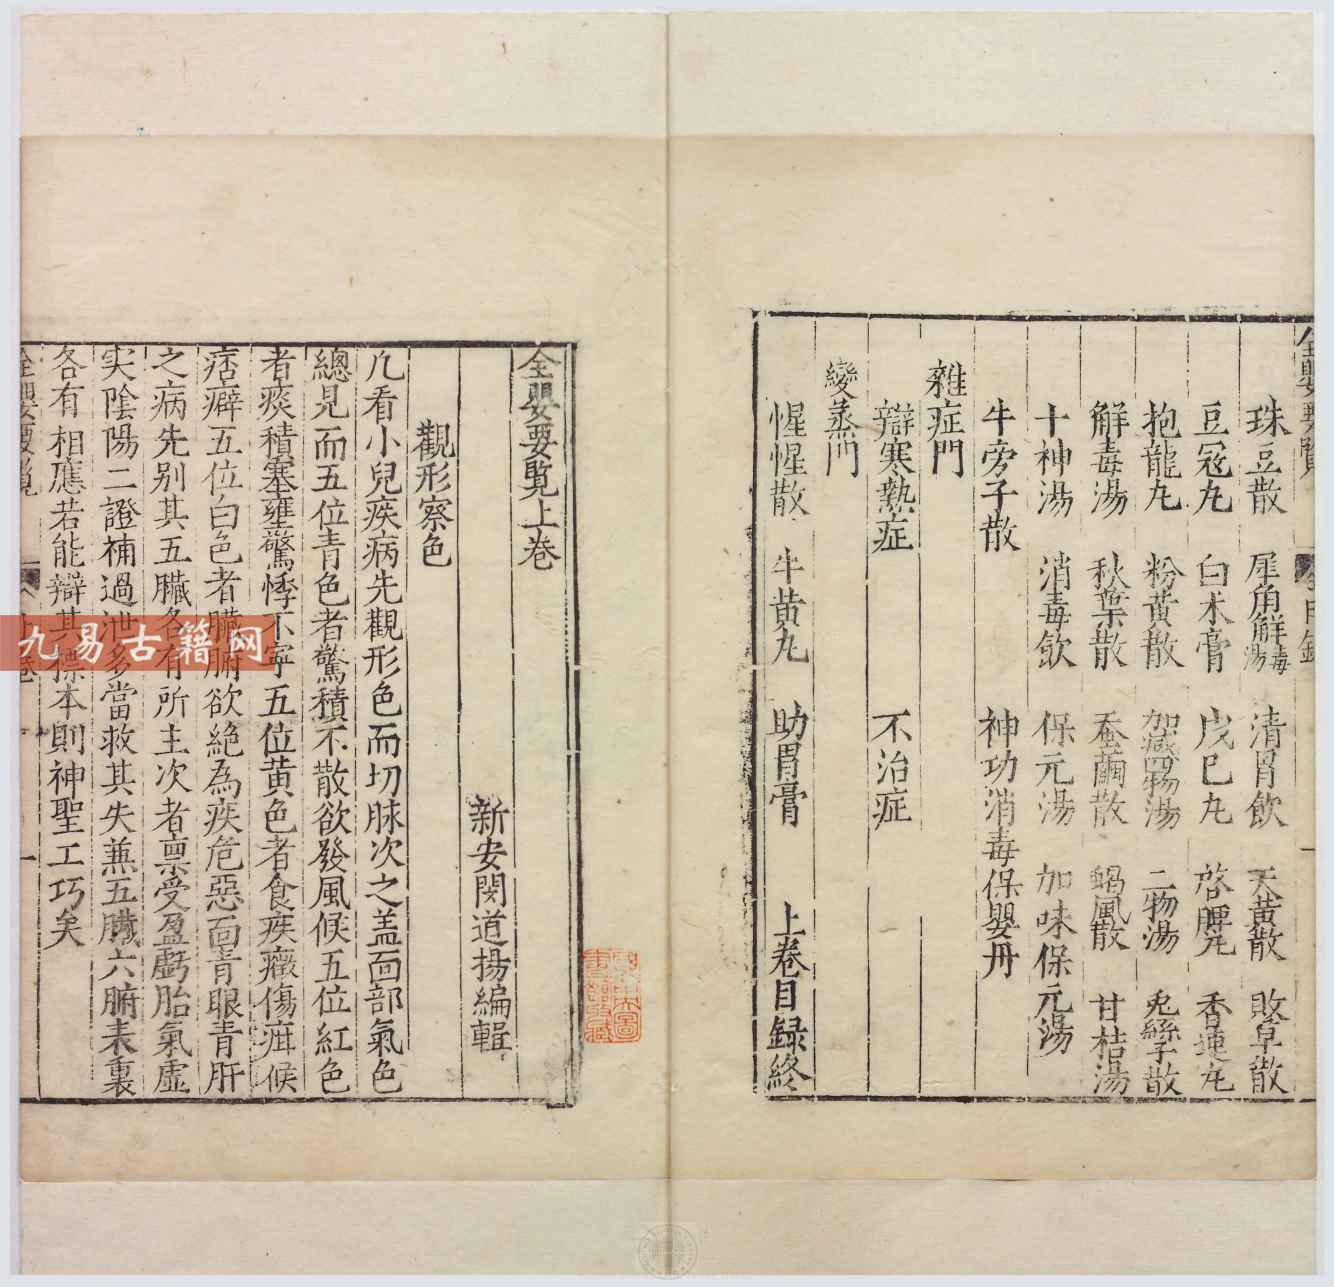 全嬰要覽
珠豆散 犀角解毒湯 清胃飲 天黃散 敗草散
豆寇丸 白术膏 戊巳丸 啓脾丸 香連丸
抱龍丸 粉黃散 加減四物湯 二物湯 兎絲子散
解毒湯 秋葉散 蚕繭散 蝎風散 甘桔湯
十神湯 消毒飲 保元湯 加味保元湯
牛旁子散 神功消毒保嬰丹
雜症門
辯寒熱症 不治症
變蒸門
惺惺散 牛黃丸 助胃膏 上卷目録終
全嬰要覧上卷
新安閔道揚編輯
觀形察色
凡看小兒疾病先觀形色而切脉次之盖面部氣色
總見而五位青色者驚積不散欲發風候五位紅色
者痰積塞壅驚悸不寕五位黃色者食疾癥傷疳候
痞癖五位白色者臟腑欲絶為疾危惡面青眼青肝
之病先别其五臟各有所主次者禀受盈虧胎氣虛
実陰陽二證補過泄多當救其失兼五臟六腑表裏
各有相應若能辯其標本則神聖工巧矣
全嬰要覧
一
九易古籍网